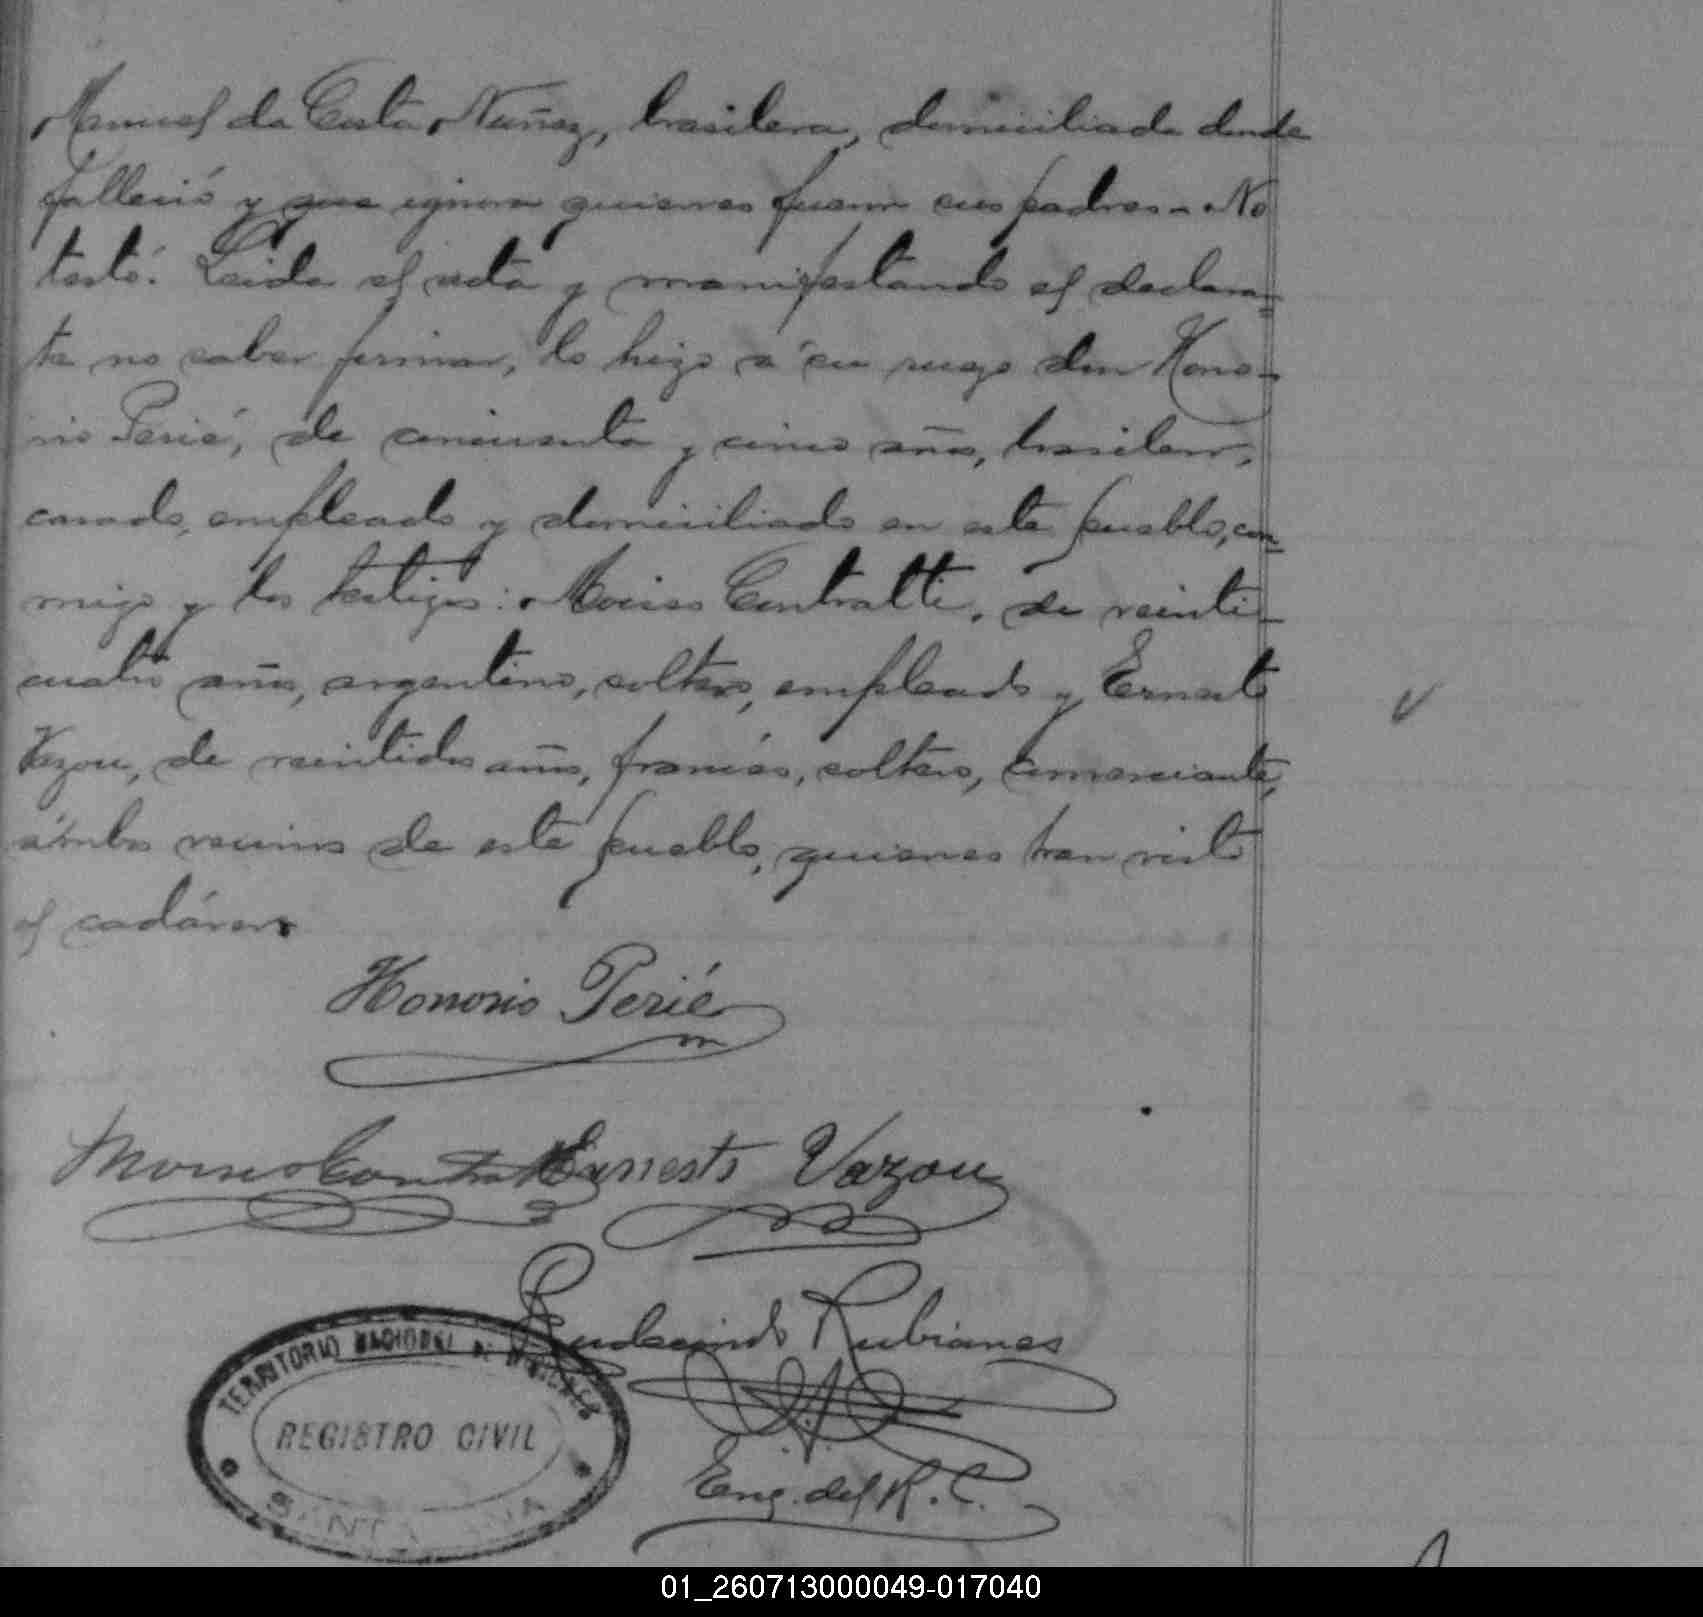 Manuel da Costa Nuñez, brasilera, domiciliada donde
falleció y que ignora quienes fueron sus padres - No
testó. Leida el acta y manifestando el declaran-
te no saber firmar, lo hizo á su ruego don Hono-
rio Perié, de cincuenta y cinco años, brasilero,
casado, empleado y domiciliado en este pueblo, con-
migo y los testigos: Moises Contratti, de veinti-
cuatro años, argentino, soltero, empleado y Ernesto
Vazou, de veintidos años, francés, soltero, comerciante,
ámbos vecinos de este pueblo, quienes han visto
el cadáver
Honorio Perié
Moises Contratti Ernesto Vazou
Rudecindo Rubianes
TERRITORIO NACIONAL DE MISIONES
REGISTRO CIVIL
SANTA ANA
Enc. del R. C.
01_260713000049-017040